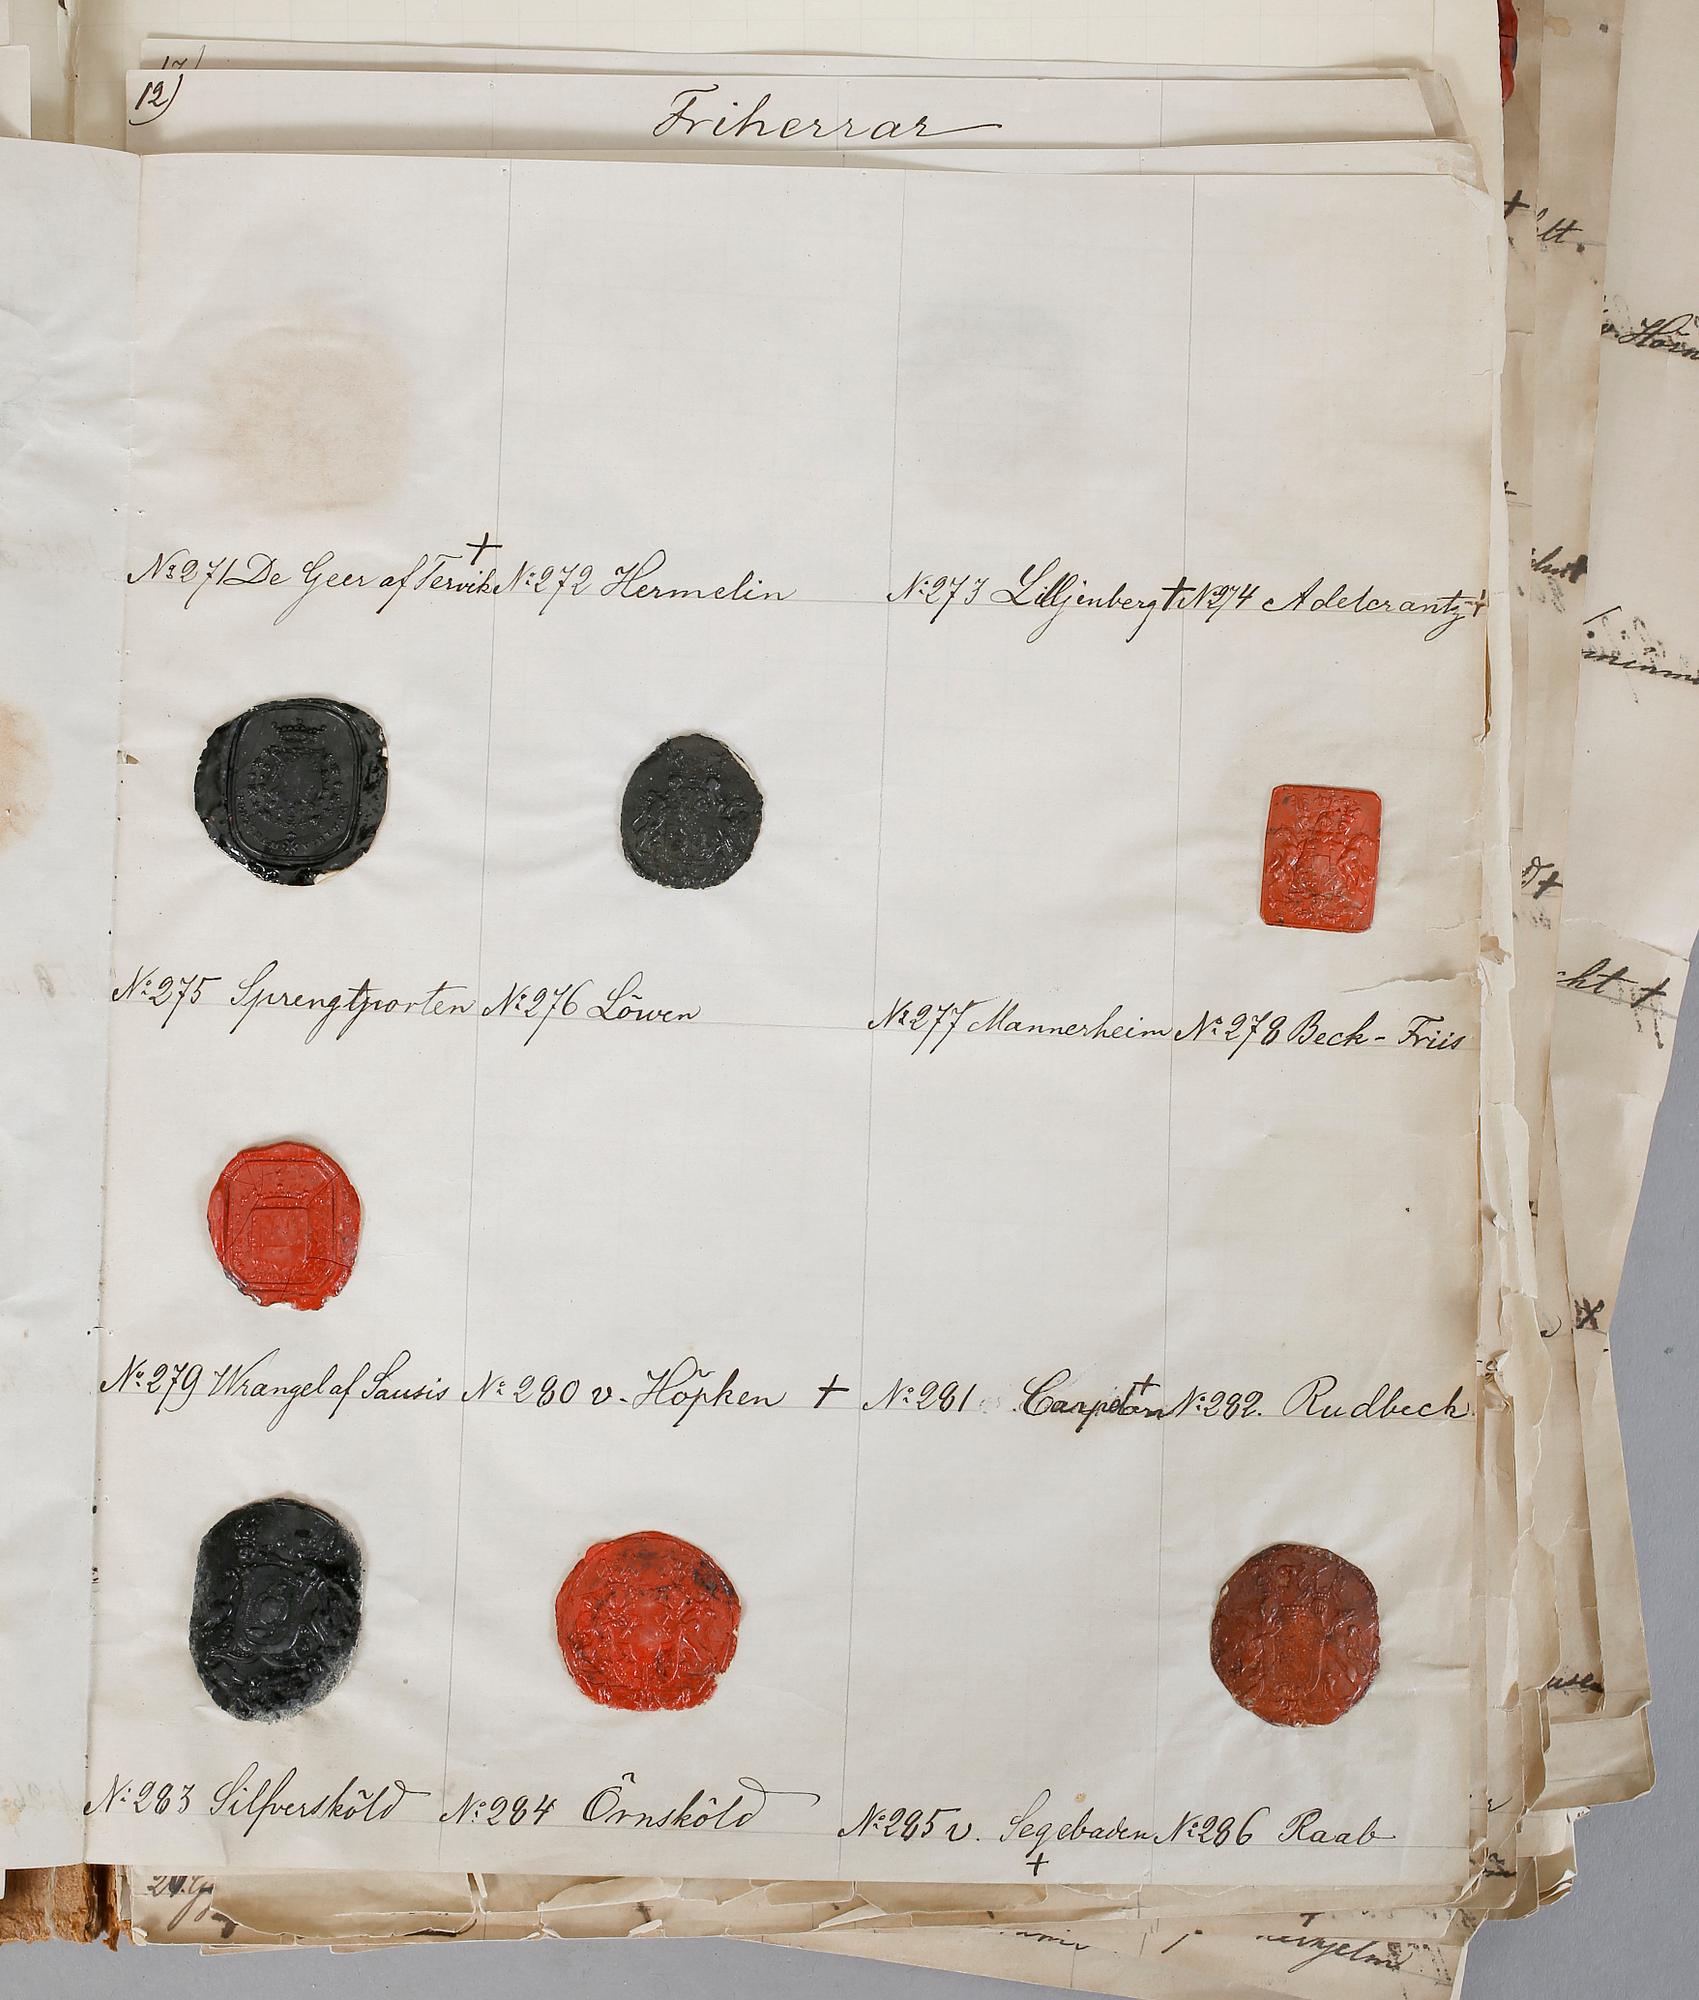 12)
Friherrar
№271 De Geer af Tervik + №272 Hermelin №273 Lilljenberg + №274 Adelcrantz +
№275 Sprengtporten №276 Löwen №277 Mannerheim №278 Beck-Friis
№279 Wrangel af Sausis №280 v. Höpken + №281 Carpelan + №282. Rudbeck
№283 Silfversköld №284 Örnsköld №285 v. Segebaden + №286 Raab